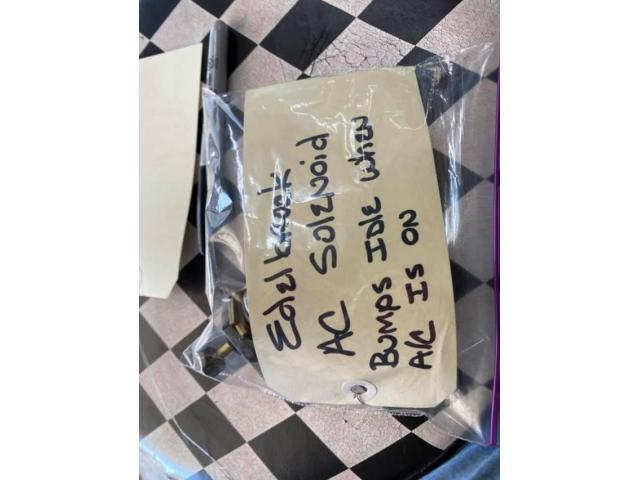 Edelbrock
AC Solenoid
BUMPS IDLE WHEN
A/C IS ON